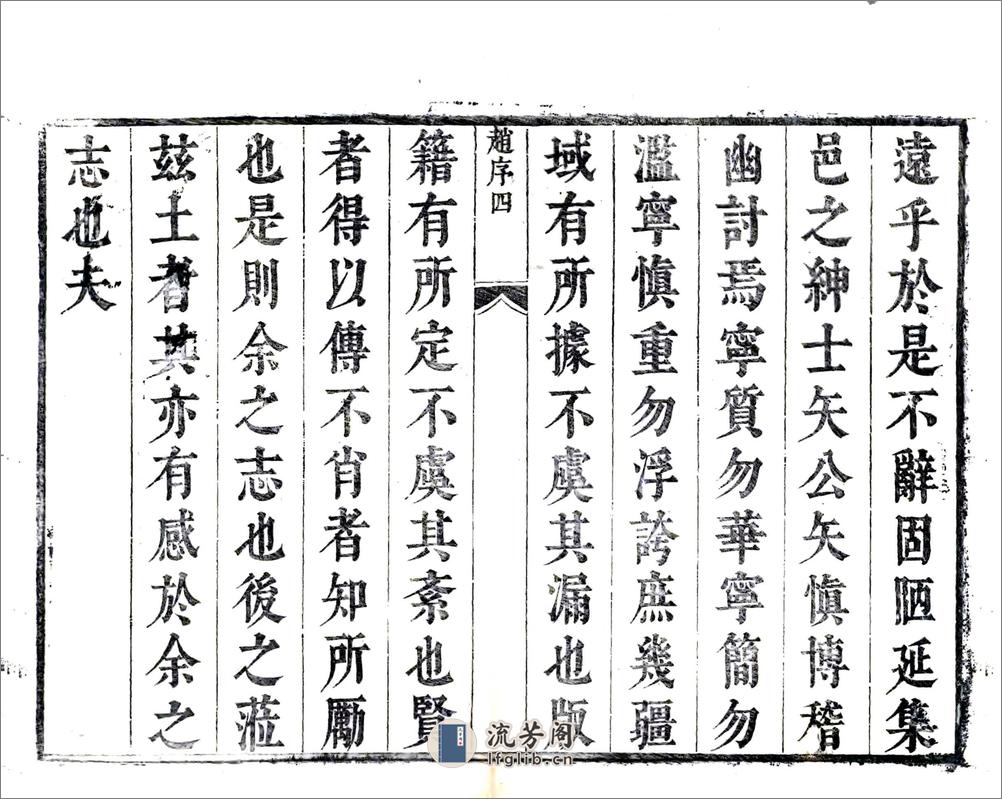 遠乎於是不辭固陋延集
邑之紳士矢公矢慎博稽
幽討焉寧質勿華寧簡勿
濫寧慎重勿浮誇庶幾疆
域有所據不虞其漏也版
趙序四
籍有所定不虞其紊也賢
者得以傳不肖者知所勵
也是則余之志也後之蒞
茲土者其亦有感於余之
志也夫
流芳阁
lfglib.cn